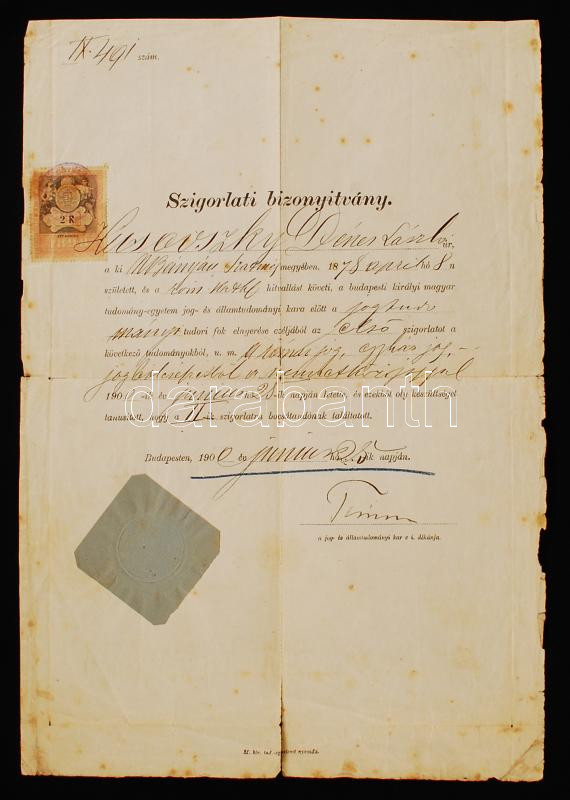 IX. 491 szám.
2 K
Szigorlati bizonyitvány.
Husovszky Dénes László úr,
a ki Nbányán Szatmár megyében. 1878 april hó 8 n
született, és a Róm. Kath. hitvallást követi, a budapesti királyi magyar
tudomány-egyetem jog- és államtudományi kara előtt a jogtudo
mányi tudori fok elnyerése czéljából az első szigorlatot a
következő tudományokból, u. m. jog, egyházjog,
jogbölcseletből a
190 ik év junius hó 25 ik napján letette, és ezekből oly készültséget
tanusitott, hogy a II ik szigorlatra bocsátandónak találtatott.
darabanth
Budapesten, 1900 év junius hó 25 ik napján.
a jog- és államtudományi kar e i. dékánja.
M. kir. tud.-egyetemi nyomda.